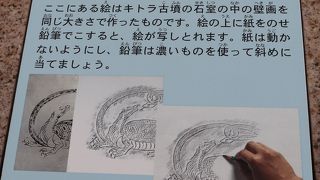 ここにある絵はキトラ古墳の石室の中の壁画を
同じ大きさで作ったものです。絵の上に紙をのせ
鉛筆でこすると、絵が写しとれます。紙は動か
ないようにし、鉛筆は濃いものを使って斜めに
当てましょう。